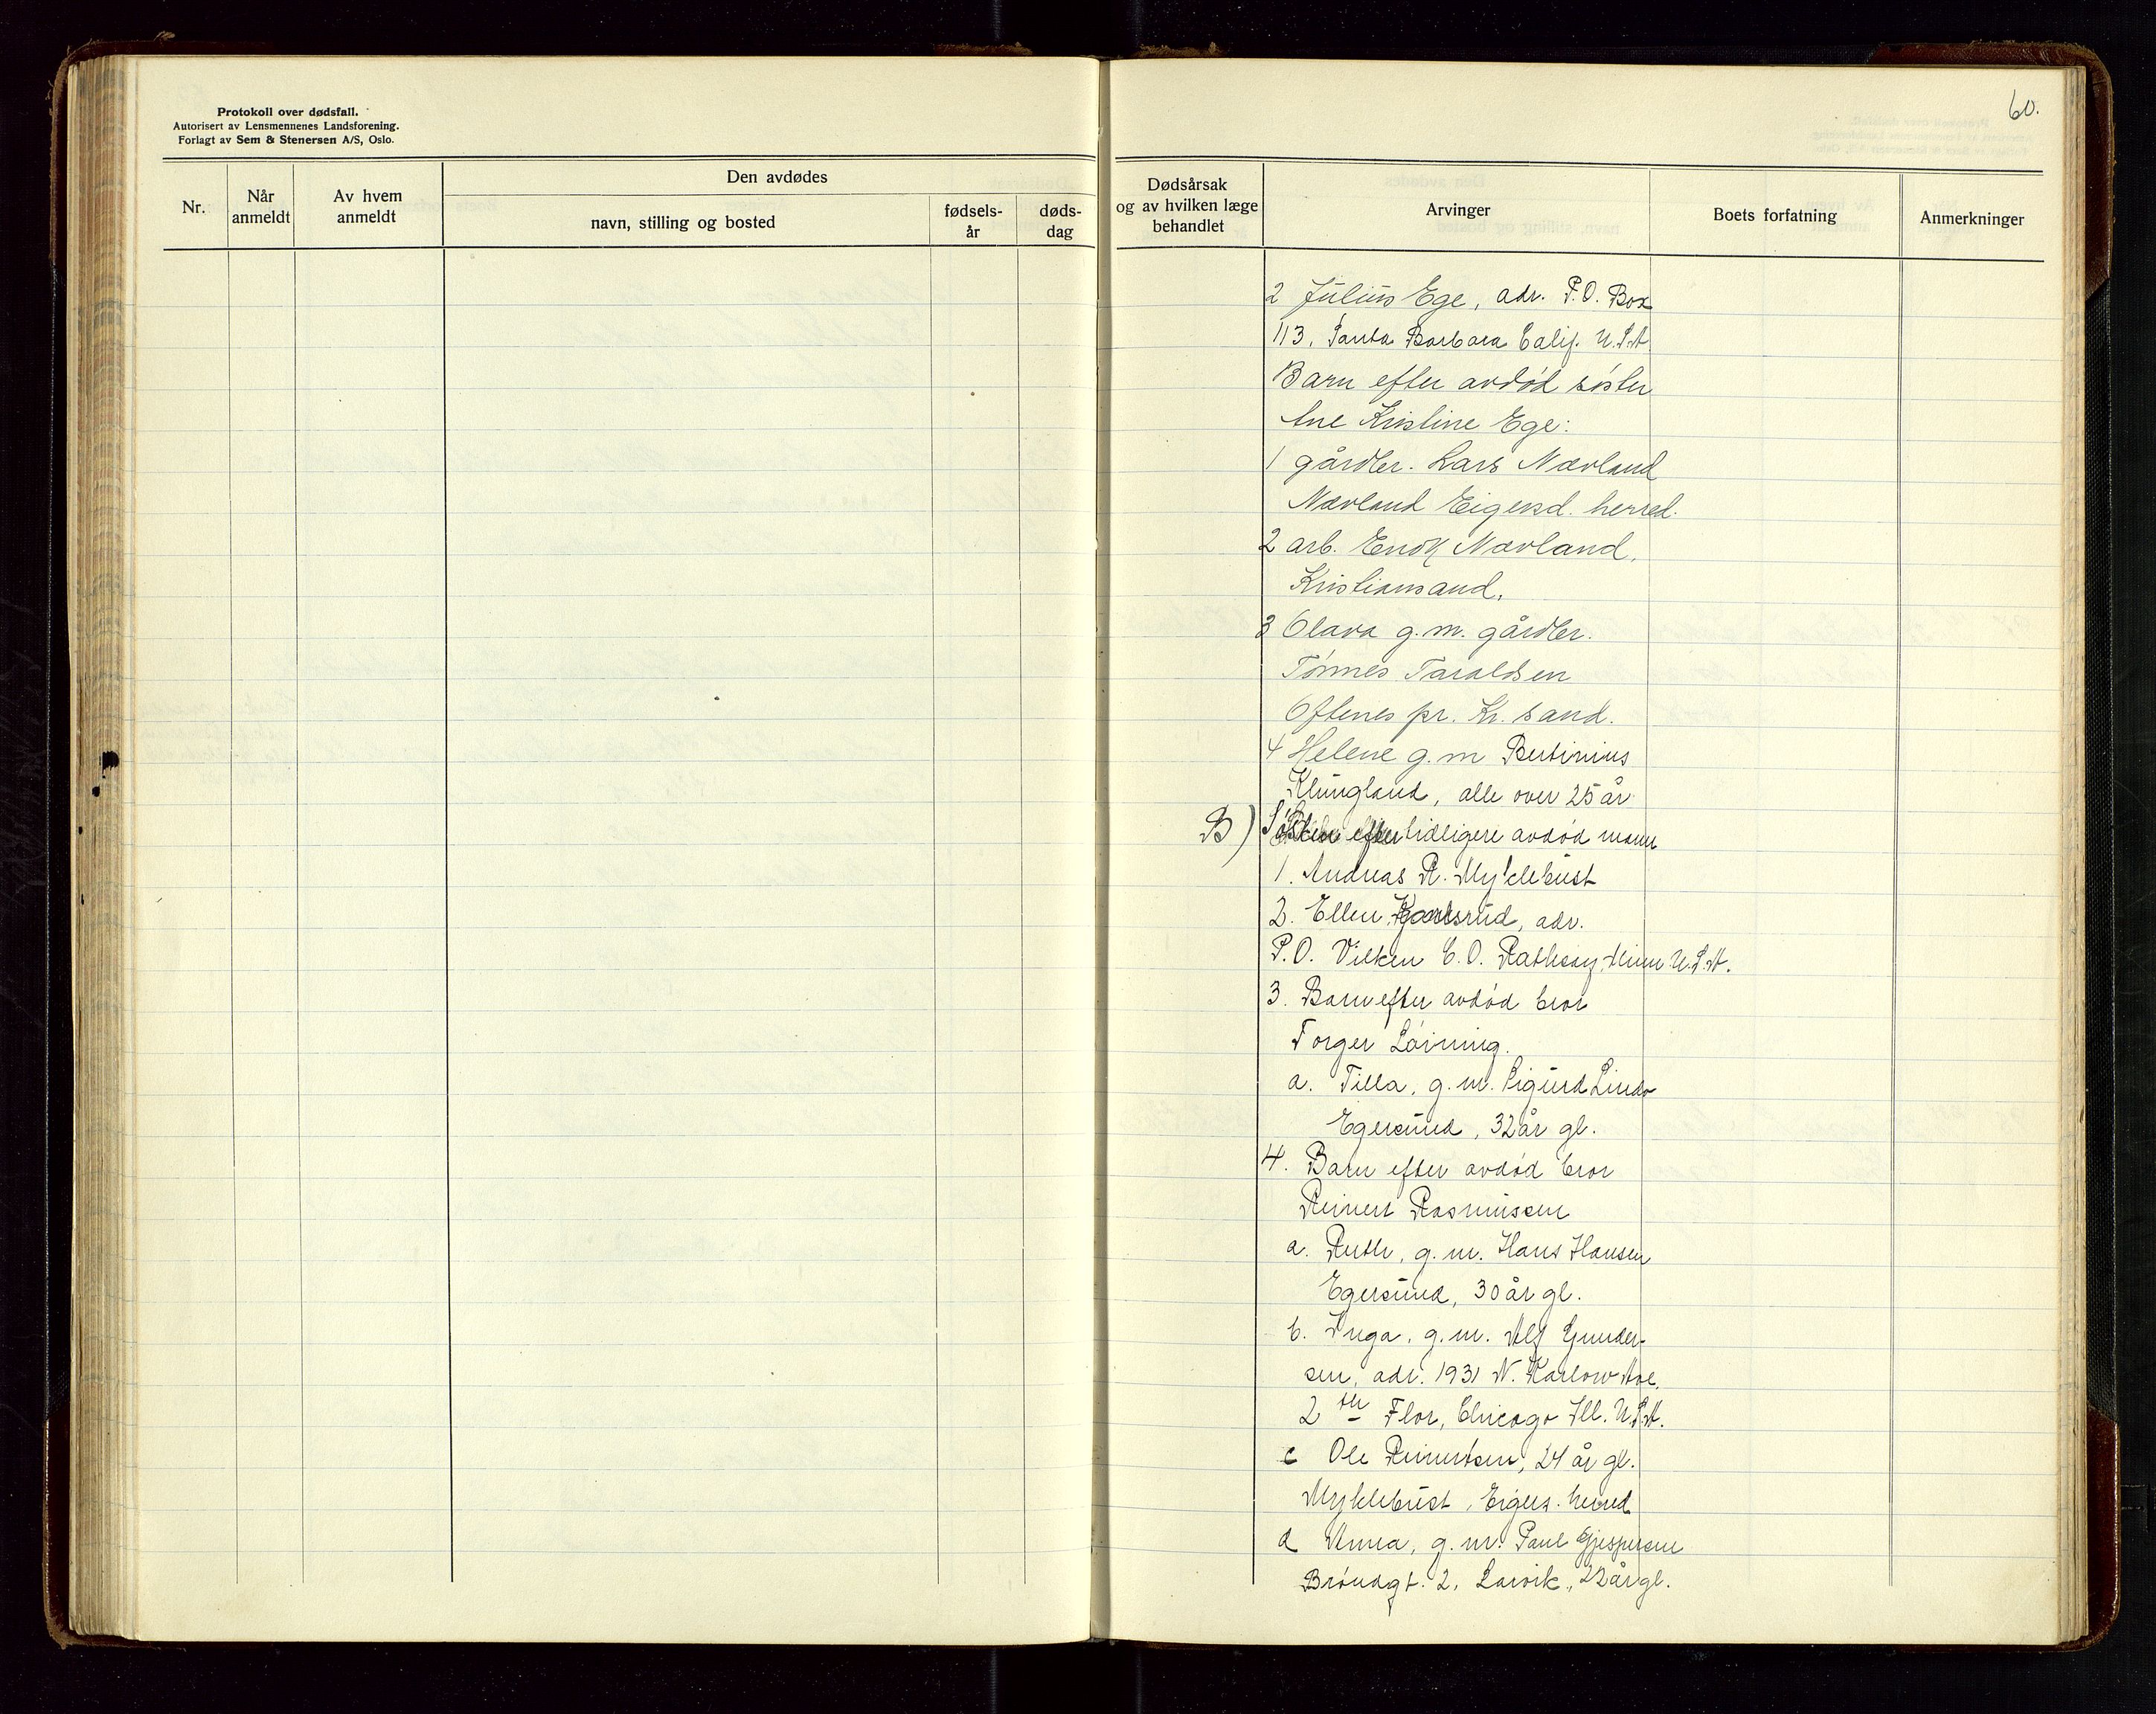 Protokoll over dødsfall.
Autorisert av Lensmennenes Landsforening.
Forlagt av Sem & Stenersen A/S, Oslo.
60.
Nr.
Når anmeldt
Av hvem anmeldt
Den avdødes
navn, stilling og bosted
fødsels-år
døds-dag
Dødsårsak og av hvilken læge behandlet
Arvinger
Boets forfatning
Anmerkninger
2 Julius Ege, adr. P.O. Box
113, Santa Barbara Calif. U.S.A.
Barn efter avdød søster
Ane Kristine Ege:
1 gårdbr. Lars Nævland
Nævland Eigersd. herred.
2 arb. Enok Nævland,
Kristiansand,
3 Olava g.m. gårdbr.
Tønnes Taraldsen
Oftenes pr. Kr. sand.
4 Helene g.m Bertinius
Klungland, alle over 25 år
B) Søsken efter tidligere avdød mann
1. Andreas R. Myklebust
2. Ellen, adr.
P.O. Vilken C.O. U.S.A.
3. Barn efter avdød bror
Torger Løining.
a. Tilla, g.m. Sigurd Lindø
Egersund, 32 år gl.
4. Barn efter avdød bror
Reinert Rasmussen
a. Ruth, g.m. Hans Hansen
Egersund, 30 år gl.
b. Inga, g.m. Alf Gunder-
sen, adr. 1931 N. Karlow Ave.
2 Flor, Chicago Ill. U.S.A.
c Ole Reinertsen, 24 år gl.
Myklebust, Eigers. herred
d Anna, g.m. Paul Gjespersen
Brøndgt. 2, Larvik, 22 år gl.